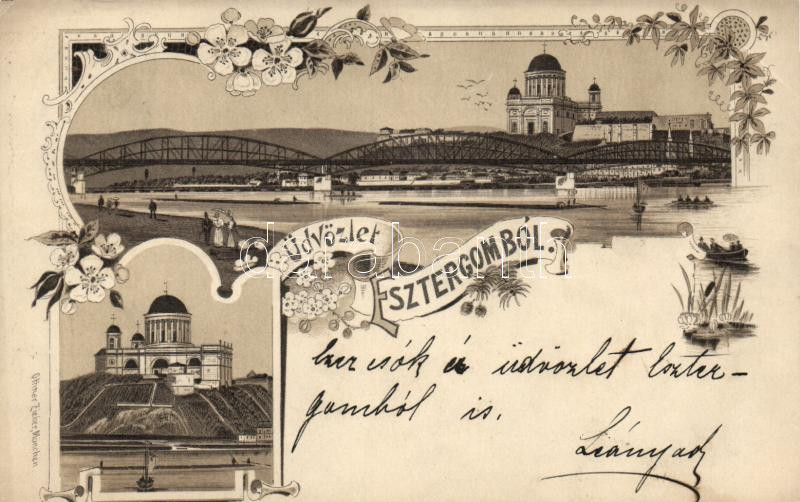 Üdvözlet
ESZTERGOMBÓL.
Ezer csók és üdvözlet Eszter-
gomból is.
Leányod
Ottmar Zieher, München
darabanth.com